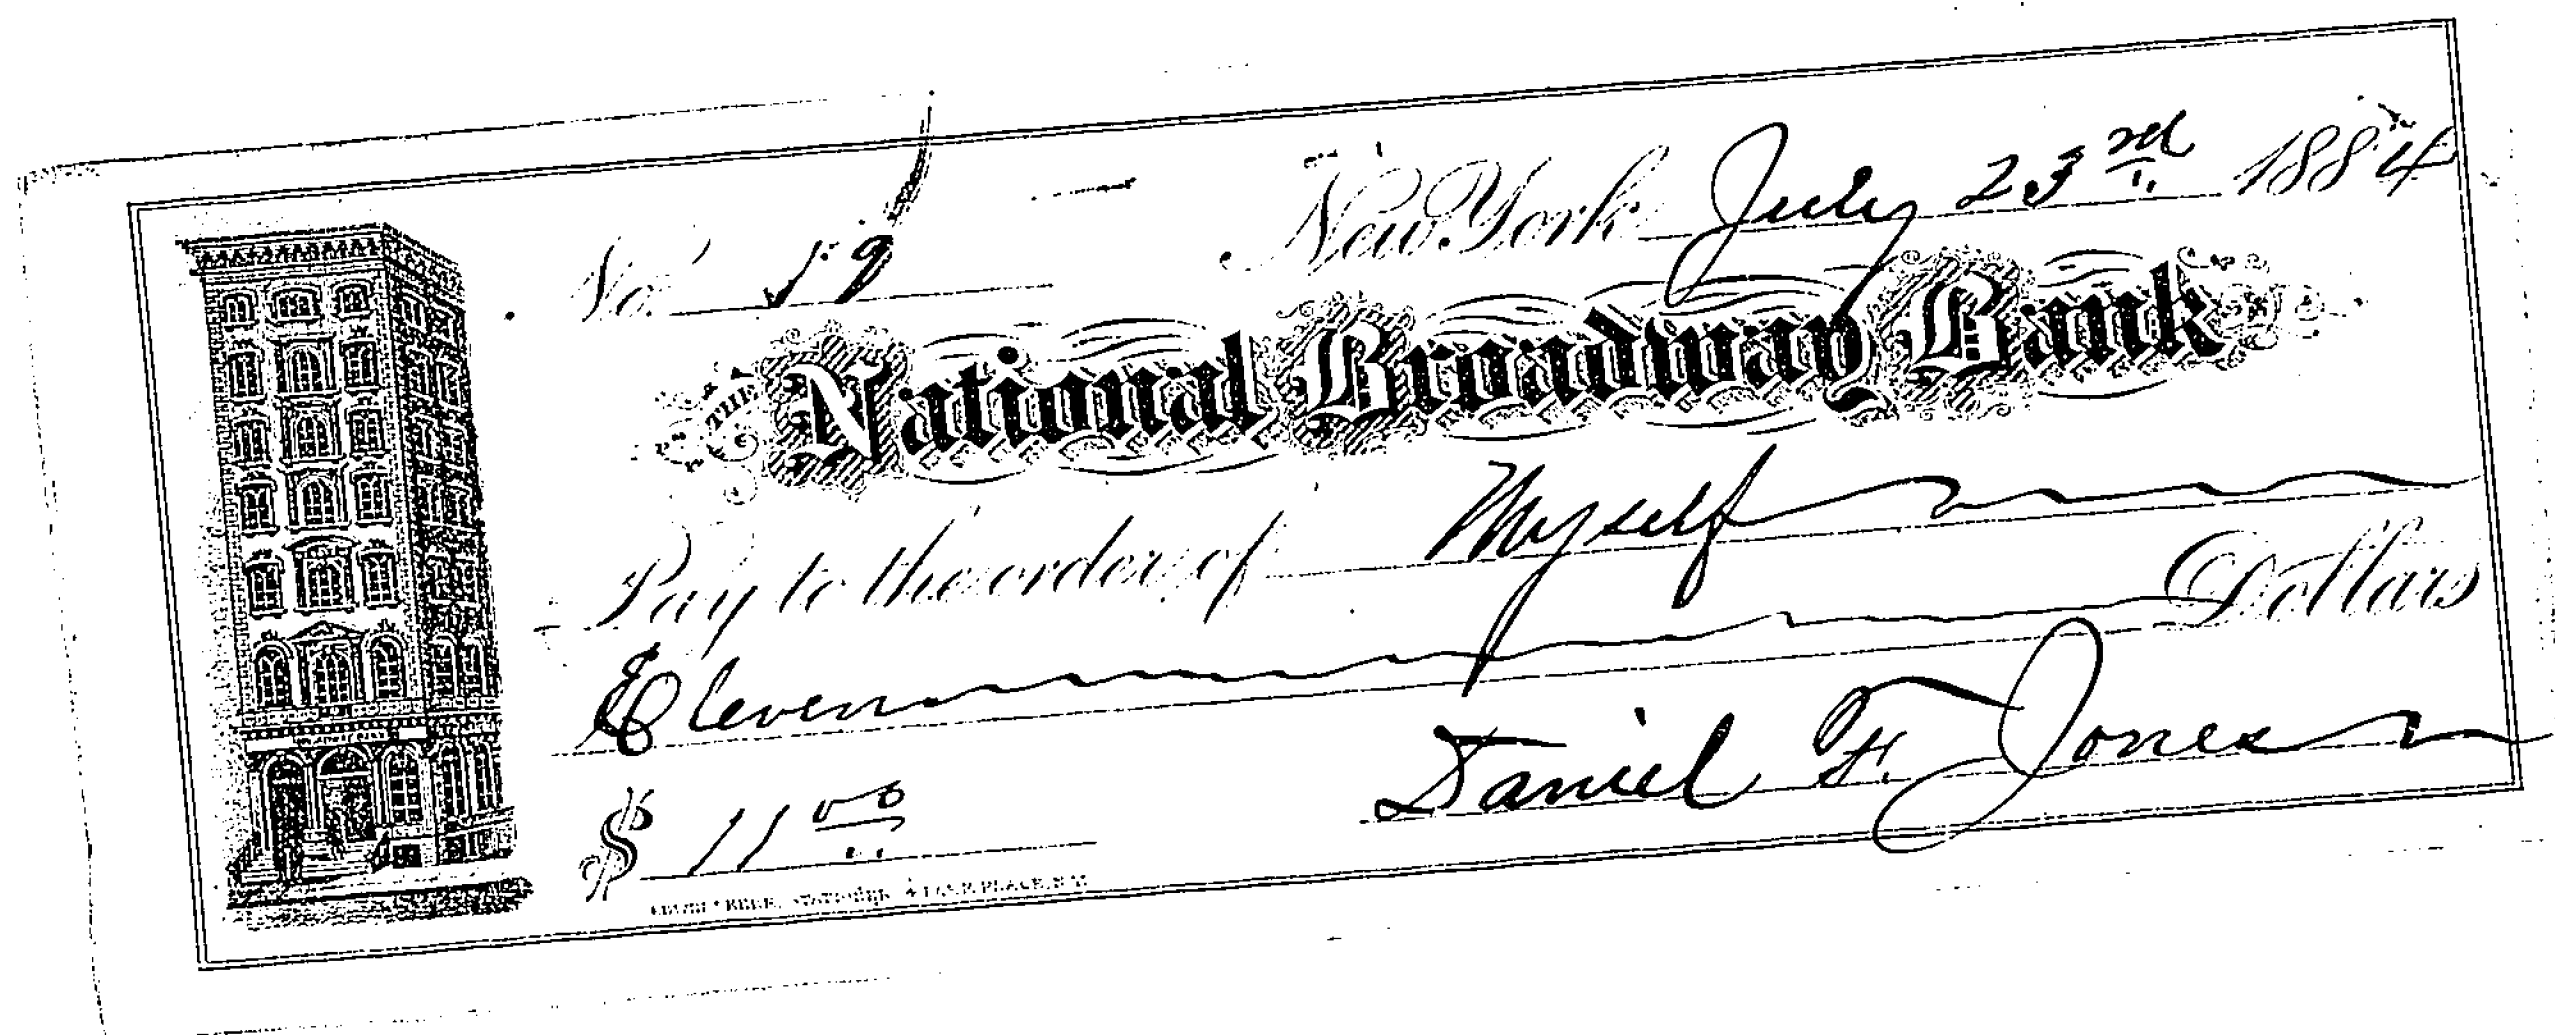 No. 59 New York July 23rd 1884
THE National Broadway Bank
Pay to the order of Myself
Eleven Dollars
$ 11 00
Daniel F. Jones
PLACE, N.Y.